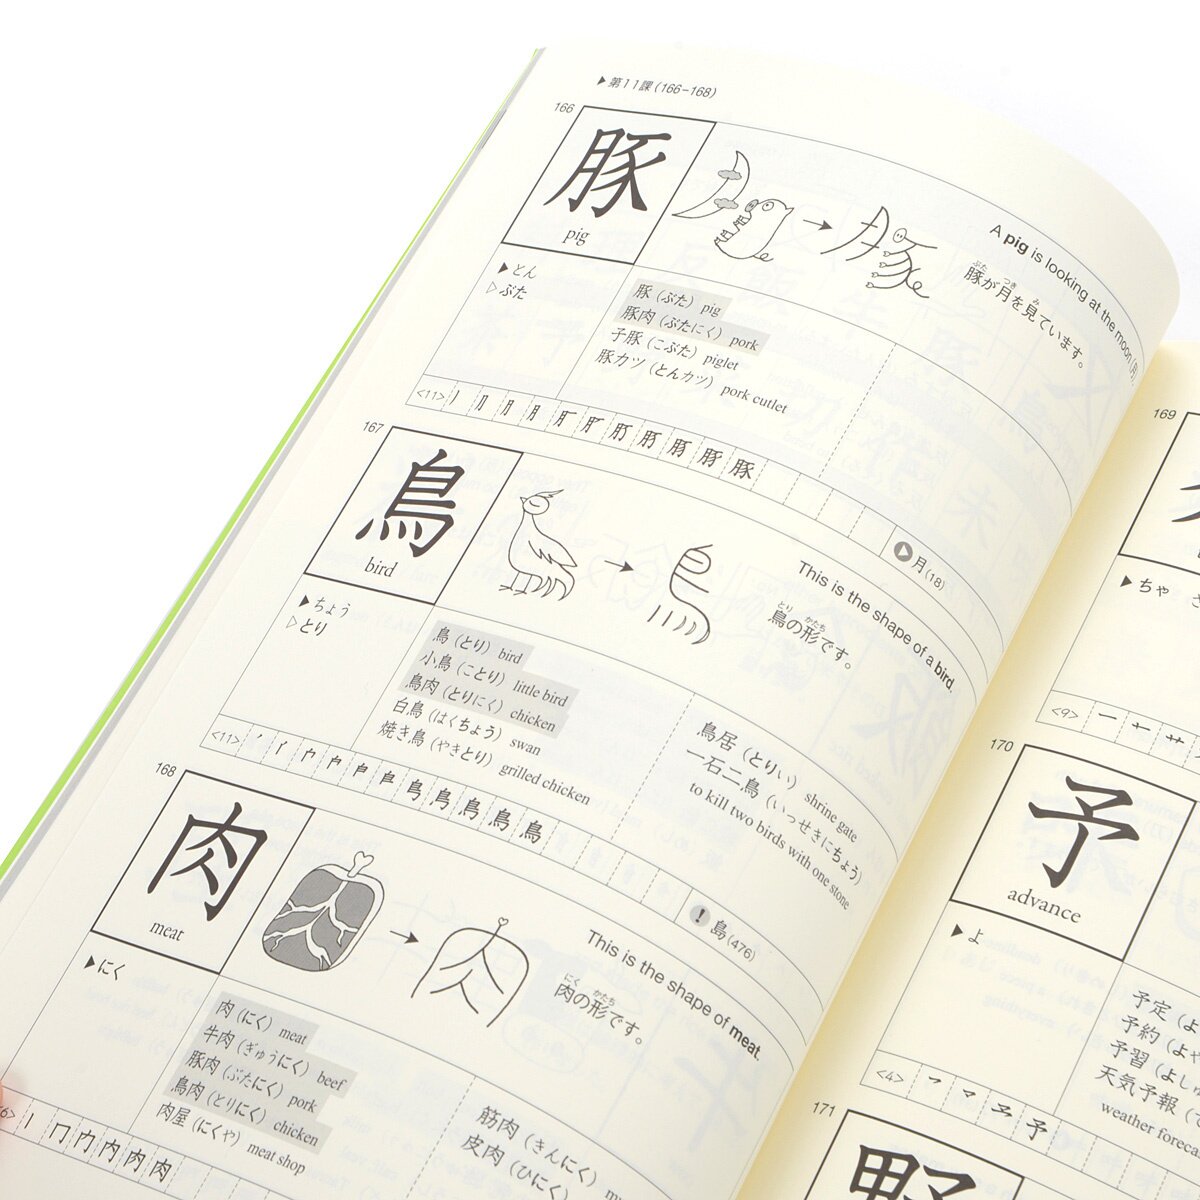 ▶第11課(166–168)
166
豚
pig
A pig is looking at the moon(月).
豚が月を見ています。
ぶた つき み
▶とん
▷ぶた
豚(ぶた) pig
豚肉(ぶたにく) pork
子豚(こぶた) piglet
豚カツ(とんカツ) pork cutlet
<11>
豚
月(18)
167
鳥
bird
This is the shape of a bird.
鳥の形です。
とり かたち
▶ちょう
▷とり
鳥(とり) bird
小鳥(ことり) little bird
鳥肉(とりにく) chicken
白鳥(はくちょう) swan
焼き鳥(やきとり) grilled chicken
鳥居(とりい) shrine gate
一石二鳥(いっせきにちょう)
to kill two birds with one stone
<11>
鳥
! 島(476)
168
肉
meat
This is the shape of meat.
肉の形です。
にく かたち
▶にく
肉(にく) meat
牛肉(ぎゅうにく) beef
豚肉(ぶたにく) pork
鳥肉(とりにく) chicken
肉屋(にくや) meat shop
筋肉(きんにく)
皮肉(ひにく)
6>
肉
169
▶ちゃ
<9>
170
予
advance
▶よ
予定(よ
予約(よや
予習(よしゅ
天気予報(
weather forecas
<4>
予
171
野